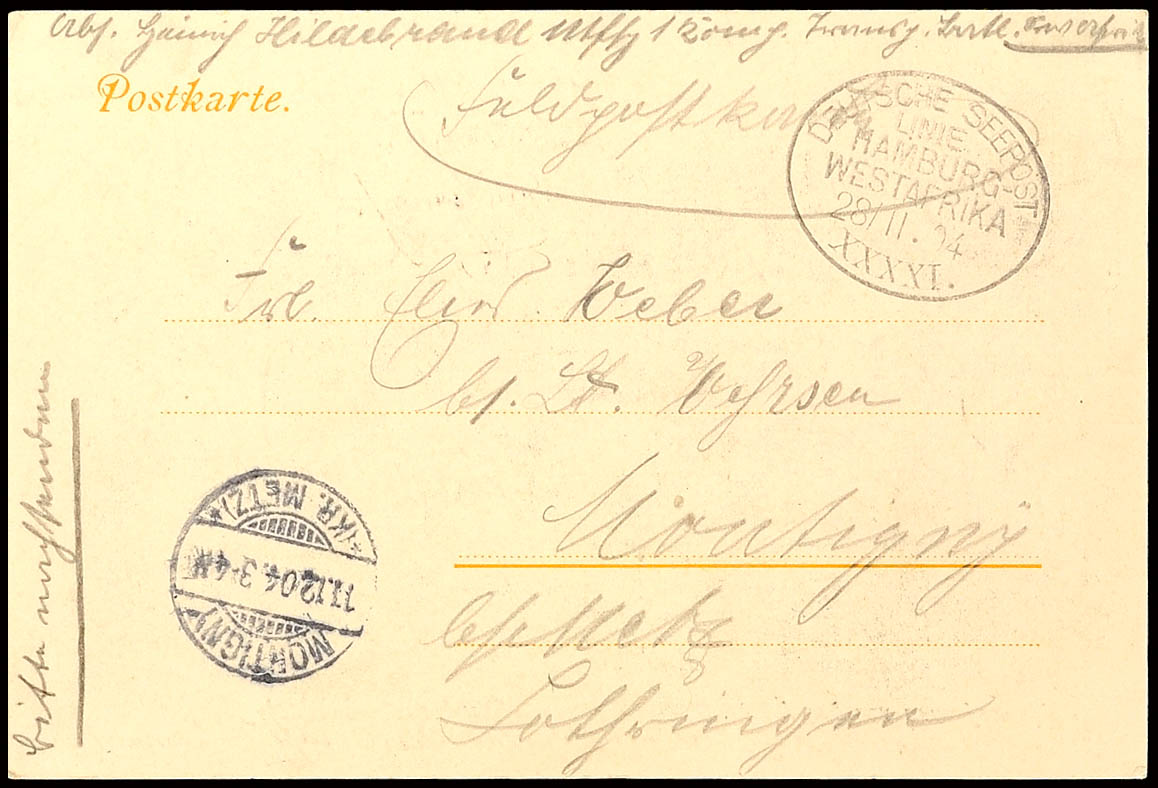 Abs. Heinrich Hildebrand 1 Königs. Transp. Batl.
Postkarte.
Feldpostkarte
DEUTSCHE SEEPOST
LINIE
HAMBURG-
WESTAFRIKA
28/11.04
XXXXI.
Frl. Elis. Weber
bs. Lt. Vehrsen
Montigny
bs/Metz
Lothringen
MONTIGNY
11.12.04.3-4N
*(KR. METZ)*
bitte nachsenden